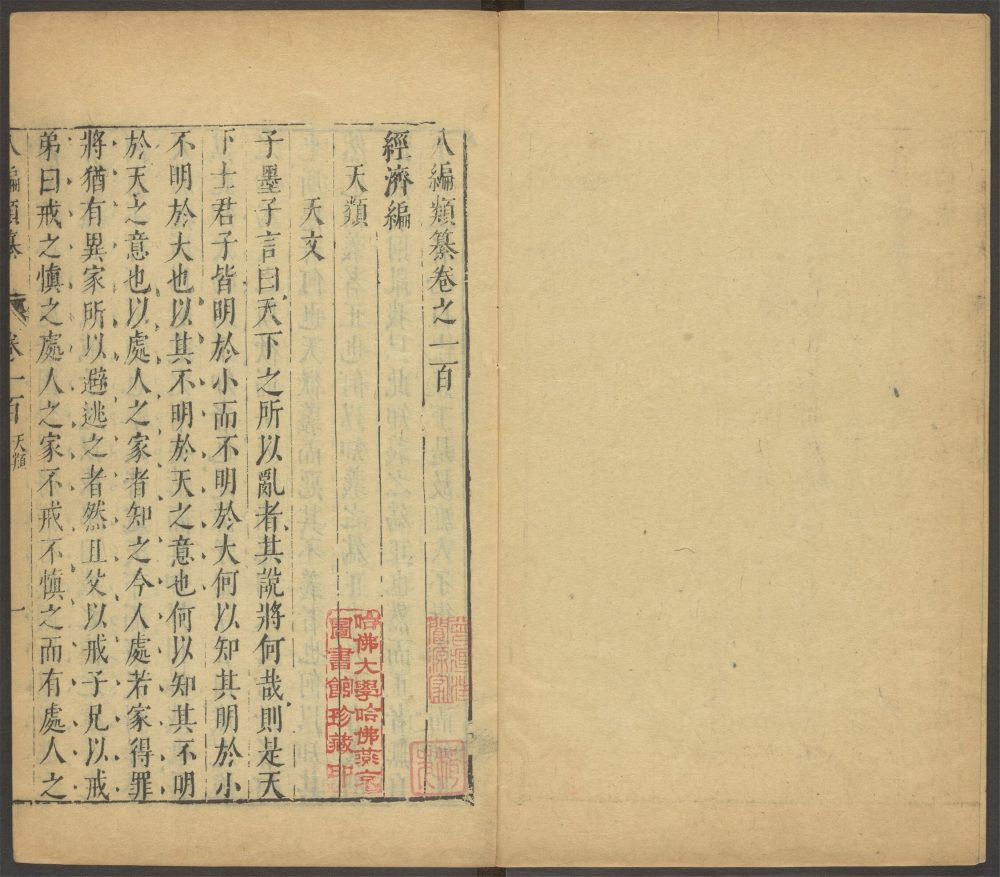 八編類纂卷之一百
經濟編
天類
天文
子墨子言曰天下之所以亂者其說將何哉則是天
下士君子皆明於小而不明於大何以知其明於小
不明於大也以其不明於天之意也何以知其不明
於天之意也以處人之家者知之今人處若家得罪
將猶有異家所以避逃之者然且父以戒子兄以戒
弟曰戒之慎之處人之家不戒不慎之而有處人之
八編類纂
卷一百
天類
一
哈佛大學哈佛燕京
圖書館珍藏印